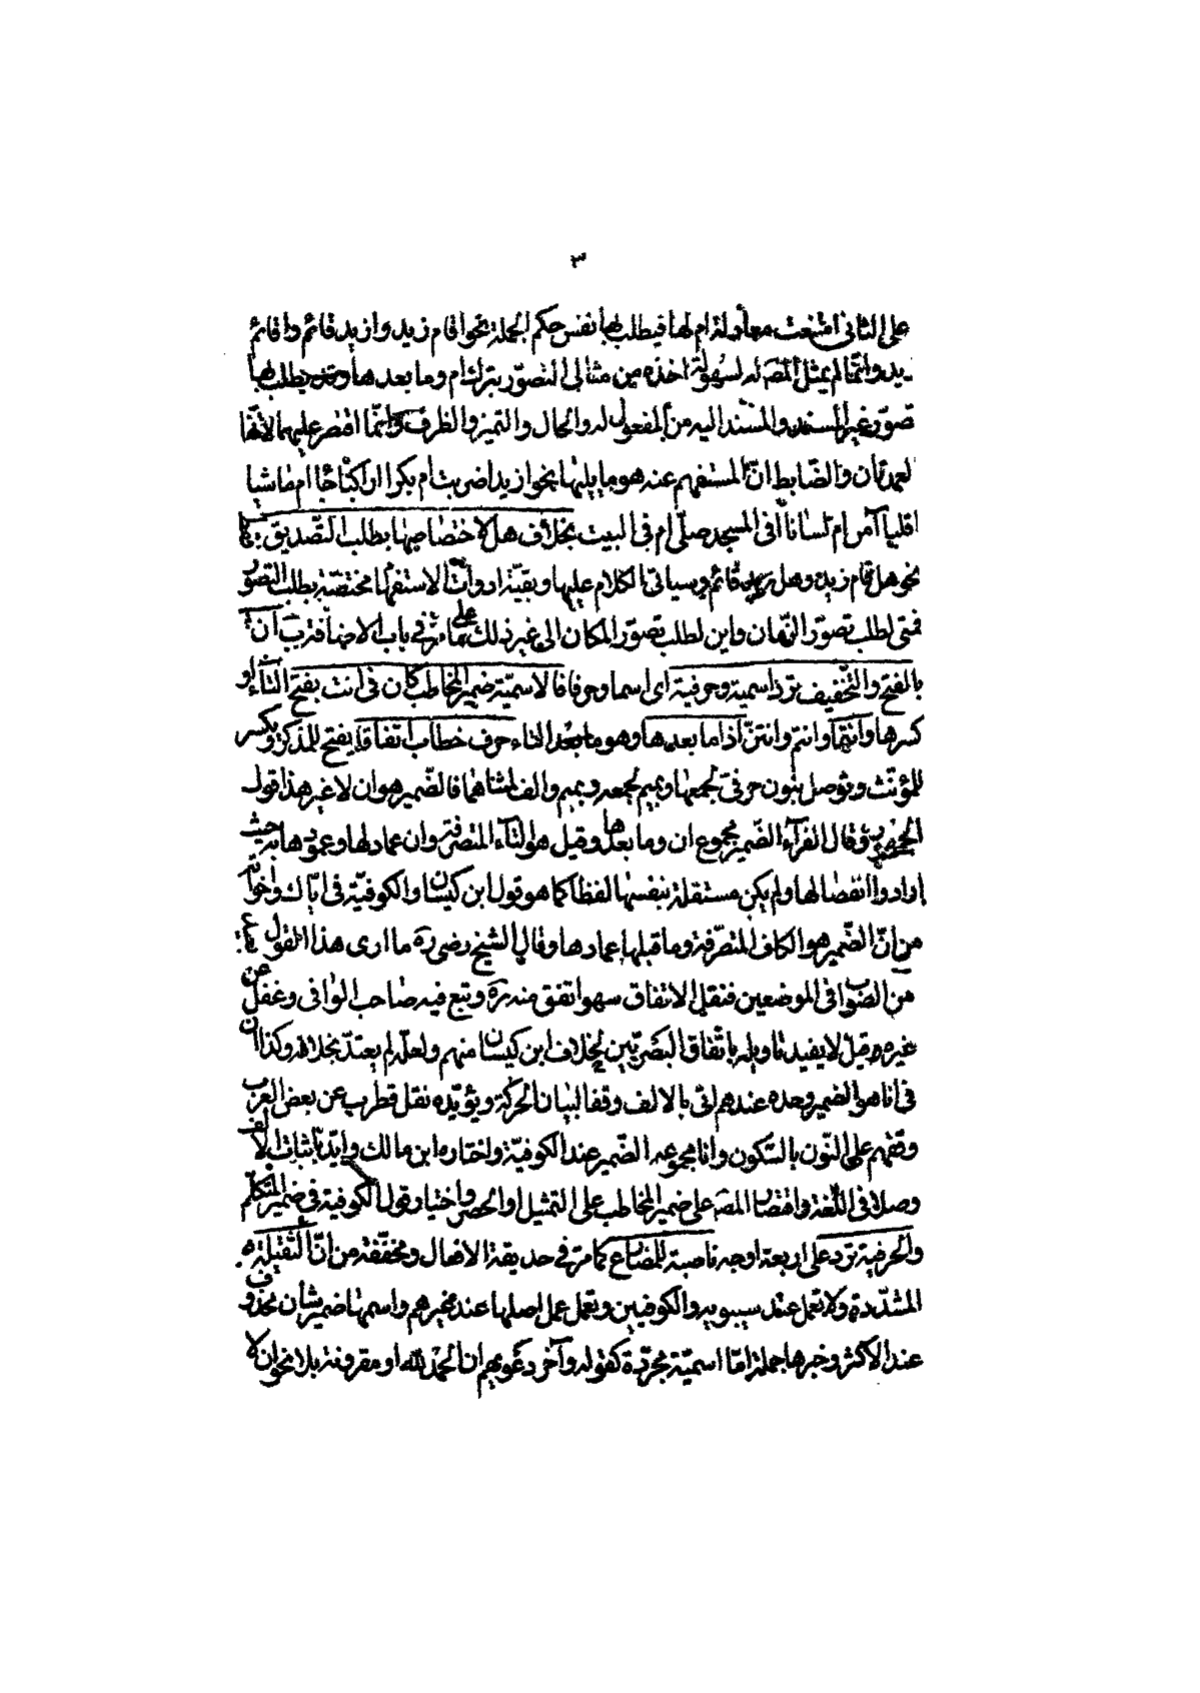 ٣
على الثانى امتنعت معادلة ام لها فيطلب بها نفس حكم الجملة نحو اقام زيد وازيد قائم واقائم
زيد وانّما لم يمثل المصّ له لسهولة اخذه من مثالى التصوّر بترك ام وما بعدها وقد يطلب بها
تصوّر غير المسند والمسند اليه من المفعول له والحال والتميز والظرف وانّما اقتصر عليهما لانّهما
لعمدتان والضّابط انّ المستفهم عنه هو ما يليها نحو ازيدا ضربت ام بكرا اراكبا جاء ام ماشيا
اقلبا آمر ام لسانا افى المسجد صلّى ام فى البيت بخلاف هل لاختصاصها بطلب التّصديق
نحو هل قام زيد وهل زيد قائم وسياتى الكلام عليها وبقيّة ادوات الاستفهام مختصّة بطلب التصوّر
فمتى لطلب تصوّر الزّمان واين لطلب تصوّر المكان الى غير ذلك على ما مرّ فى باب الاضافة ان
بالفتح والتّخفيف ترد اسمية وحرفية اى اسما وحرفا فالاسميّة ضمير المخاطب كان فى انت بفتح التّاء او
كسرها وانتما وانتم وانتنّ اذ ما بعدها وهو ما بعد التاء حرف خطاب اتّفاقا يفتح للمذكّر ويكسر
للمؤنّث ويوصل بنون حرفىّ لجمعها وميم لجمعه وبميم والف لمثناهما فالضّمير هو ان لا غير هذا قول
وقال الفرّاء الضّمير مجموع ان وما بعدها وقيل هو التّاء المتصرفة وان عماد لها وعمودها به حيث
ارادوا انفصالها ولم يكن مستقلة بنفسها لفظا كما هو قول ابن كيسان والكوفيّة فى ايّاك واخواته
من انّ الضّمير هو الكاف المتصرّفة وما قبلها عماد وقال الشيخ رضى ره ما ارى هذا القول
من الصّواب فى الموضعين فنقل الاتفاق سهو اتّفق منه ره وتبع فيه صاحب الوافى وغفل عن
غيره وقيل لا يفيد تاويله باتّفاق البصريّين بخلاف ابن كيسان منهم ولعلّه لم يعتدّ بخلافه وكذا ان
فى انا هو الضمير وحده عندهم اتى بالالف وقفا لبيان الحركة ويؤيّده نقل قطرب عن بعض العرب
وقفهم على النّون بالسّكون وانا مجموعه الضّمير عند الكوفيّة واختاره ابن مالك وايّد باثبات الالف
وصلا فى اللّغة واقتصار المصّ على ضمير المخاطب على التمثيل او الحصر واختيار قول الكوفية فى ضمير المتكلّم
والحرفية ترد على اربعة اوجه ناصبة للمضارع كما مرّ فى حديقة الافعال ومخفّفة من انّ الثّقيلة
المشدّدة ولا تعمل عند سيبويه والكوفيين وتعمل عمل اصلها عند غيرهم واسمها ضمير شأن محذوف
عند الاكثر وخبرها جملة امّا اسميّة مجرّدة كقوله وآخر دعويهم ان الحمد لله او مقرونة بلا نحو ان لا